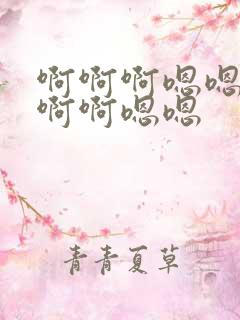 啊啊啊嗯嗯
啊啊嗯嗯
青青夏草